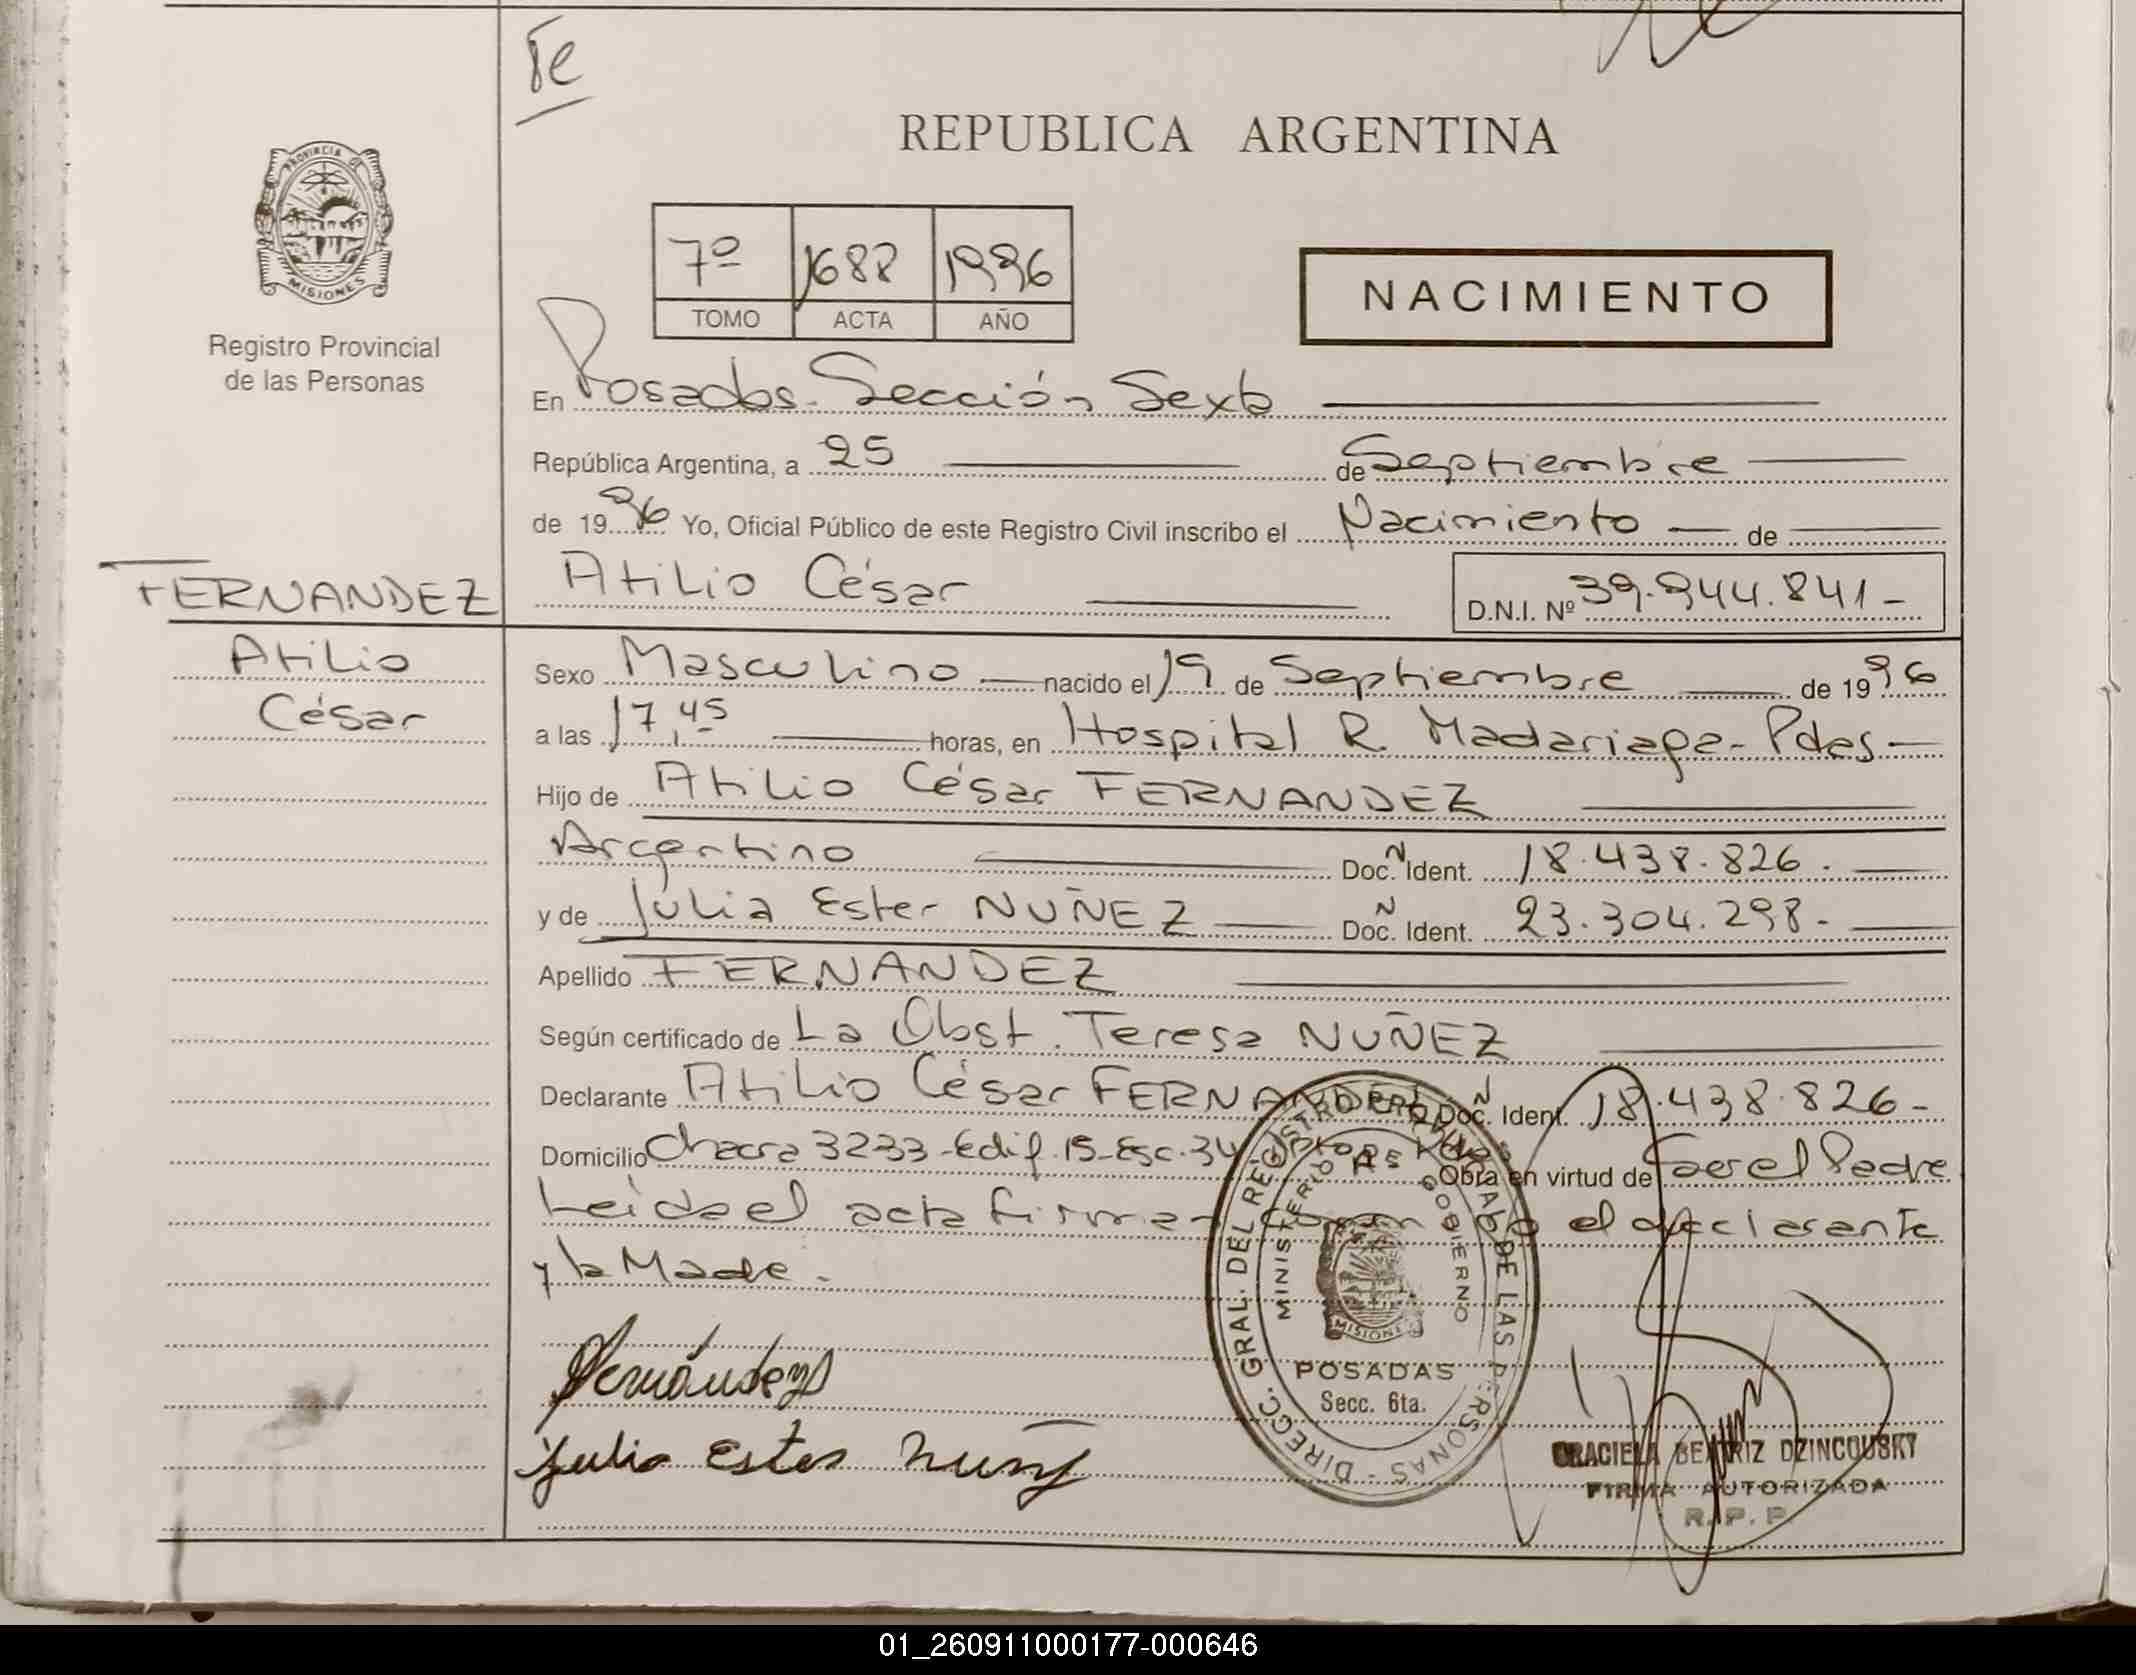 Te
REPUBLICA ARGENTINA
PROVINCIA DE
MISIONES
Registro Provincial
de las Personas
7º 1688 1996
TOMO ACTA AÑO
NACIMIENTO
En Posadas. Sección Sexta
República Argentina, a 25 de Septiembre
de 1996 Yo, Oficial Público de este Registro Civil inscribo el Nacimiento de
FERNANDEZ
Atilio César
Atilio César
D.N.I. Nº 39.944.841-
Sexo Masculino nacido el 19 de Septiembre de 1996
a las 17,45 horas, en Hospital R. Madariaga- Pdas
Hijo de Atilio César FERNANDEZ
Argentino Doc. N Ident. 18.438.826.
y de Julia Ester NUÑEZ Doc. N Ident. 23.304.298-
Apellido FERNANDEZ
Según certificado de La Obst. Teresa NUÑEZ
Declarante Atilio César FERNANDEZ Doc. N Ident. 18.438.826-
Domicilio Chacra 32-33-Edif.15-Esc.34 Obra en virtud de ser el Padre
Leida el acta firman el declarante
y la Madre.
Fernández
Julia Ester Nuñez
DIRECC. GRAL. DEL REGISTRO PROVINCIAL DE LAS PERSONAS -
MINISTERIO DE GOBIERNO
MISIONES
POSADAS
Secc. 6ta.
GRACIELA BEATRIZ DZINCOUSKY
FIRMA AUTORIZADA
R.P.P.
01_260911000177-000646